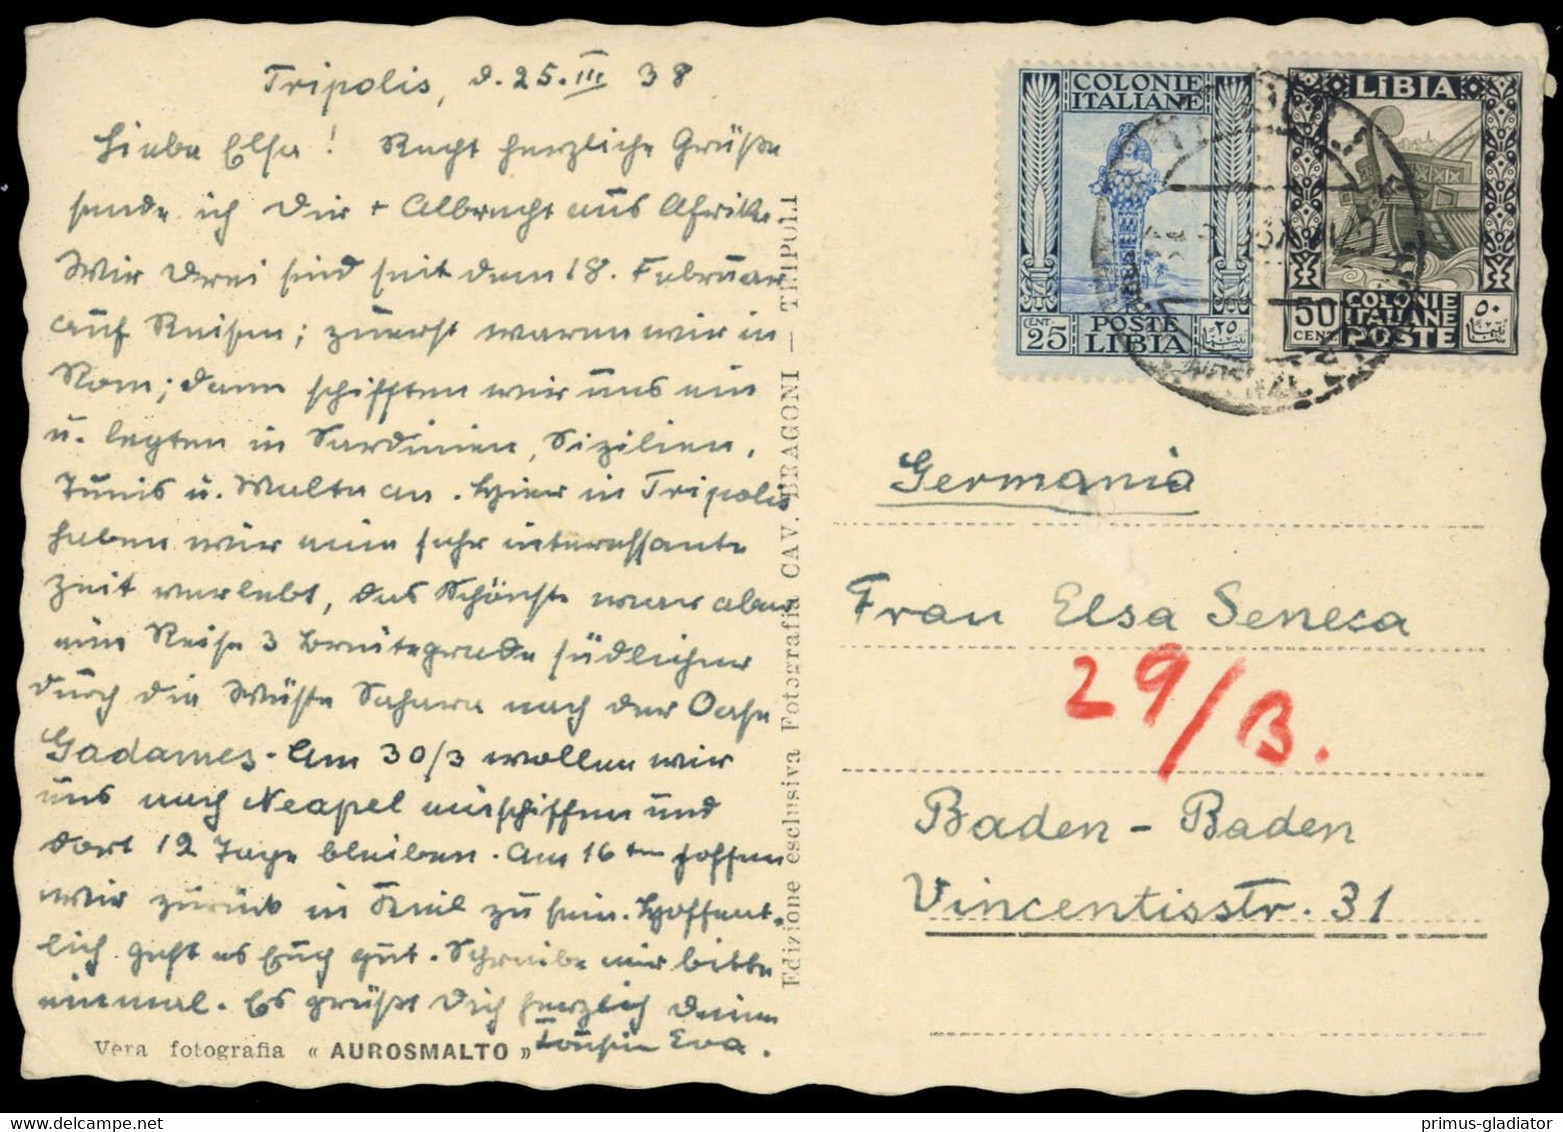 Tripolis, d. 25. III 38
Liebe Elsa! Recht herzliche Grüße
sende ich Dir + Albrecht aus Afrika.
Wir drei sind seit dem 18. Februar
auf Reisen; zuerst waren wir in
Rom; dann schifften wir uns ein
u. legten in Sardinien, Sizilien,
Tunis u. Malta an. Hier in Tripolis
haben wir eine sehr interessante
Zeit verlebt, das Schönste war aber
eine Reise 3 Breitegrade südlicher
durch die Wüste Sahara nach der Oase
Gadames. Am 30/3 wollen wir
uns nach Neapel einschiffen und
dort 12 Tage bleiben. Am 16ten hoffen
wir zurück in Kiel zu sein. Hoffent-
lich geht es Euch gut. Schreibe mir bitte
einmal. Es grüßt Dich herzlich deine
Cousine Eva.
Vera fotografia « AUROSMALTO »
Edizione esclusiva Fotografia CAV. BRAGONI - TRIPOLI
COLONIE
ITALIANE
CENT. 25
POSTE
LIBIA
٢٥
LIBIA
50
CENT
COLONIE
ITALIANE
POSTE
٥٠
Germania
Frau Elsa Seneca
29/3.
Baden-Baden
Vincentisstr. 31
primus-gladiator